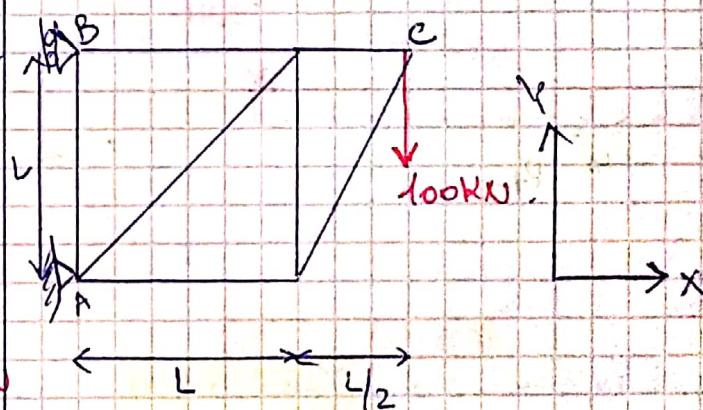 B
C
L
Y
100KN.
X
A
L
L/2